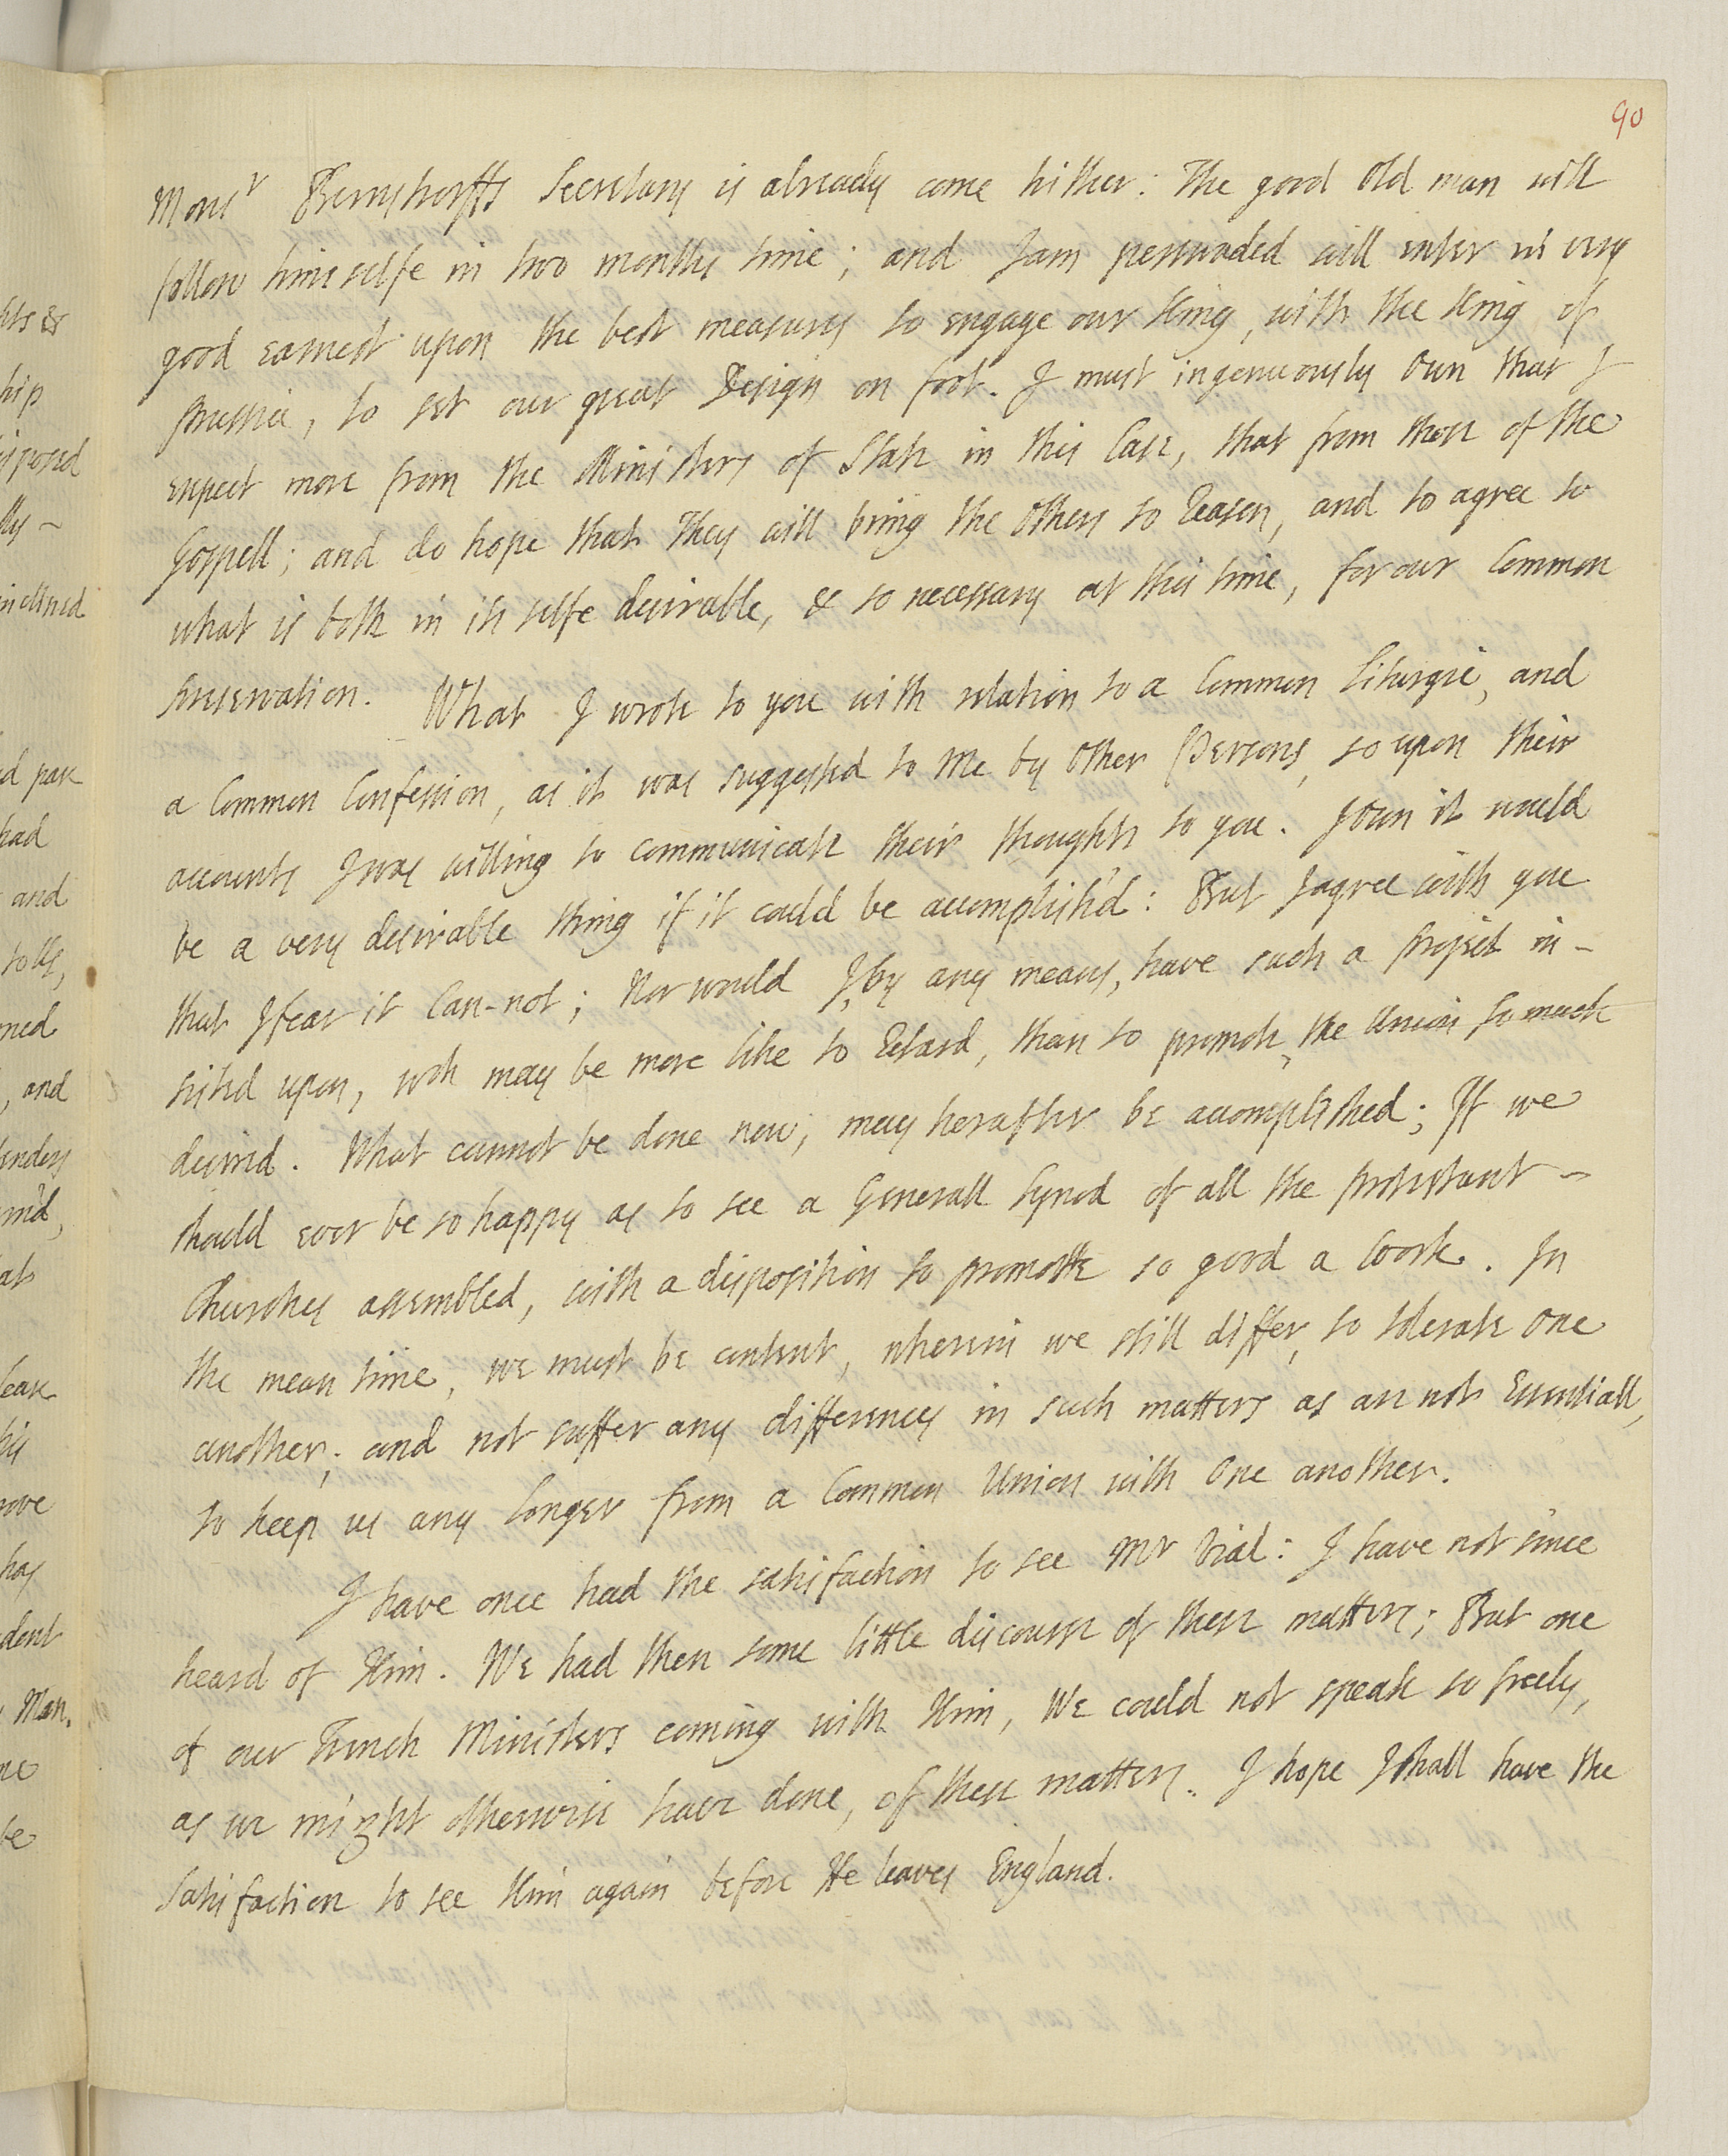 90
Monsr Bernstorffs Secretary is already come hither: The good Old man will
follow himselfe in two months time; and I am perswaded will enter in very
good earnest upon the best measures to engage our King, with the King of
Prussia, to set our great Design on foot. I must ingenuously Own that I
expect more from the Ministers of State in this Case, that from those of the
Gospell; and do hope that They will bring the Others to Reason, and to agree to
what is both in its selfe desirable, & so necessary at this time, for our Common
Preservation. What I wrote to you with relation to a Common Liturgie, and
a Common Confession, as it was suggested to Me by Other Persons, so upon their
accounts I was willing to communicate their thoughts to you. I Own it would
be a very desirable thing if it could be accomplish'd: But I agree with you
that I fear it Can-not; Nor would I, by any means, have such a Project in-
sisted upon, wch may be more like to Retard, than to promote, the Union so much
desired. What cannot be done now, may herafter be accomplished; If we
should ever be so happy as to see a Generall Synod of all the Protestant -
Churches assembled, with a disposition to promotte so good a Work. In
the mean time, we must be content, wherein we still differ, to tolerate One
another; and not suffer any differences in such matters as are not Essentiall,
to keep us any longer from a Common Union with One another.
I have once had the satisfaction to see Mr Vial: I have not since
heard of Him. We had then some little discourse of these matters; But one
of our French Ministers coming with Him, We could not speak so freely,
as we might otherwise have done, of these matters. I hope I shall have the
Satisfaction to see Him again before He leaves England.